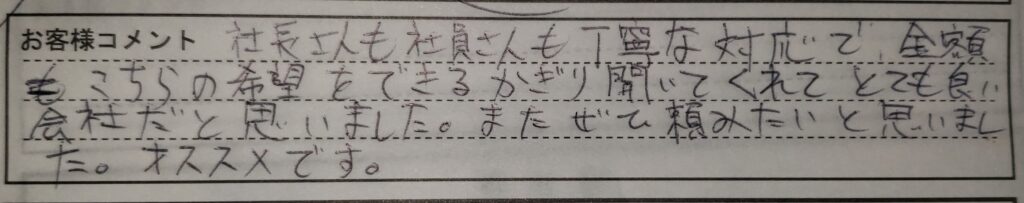 お客様コメント 社長さんも社員さんも丁寧な対応で、金額
もこちらの希望をできるかぎり聞いてくれてとても良い
会社だと思いました。またぜひ頼みたいと思いまし
た。オススメです。